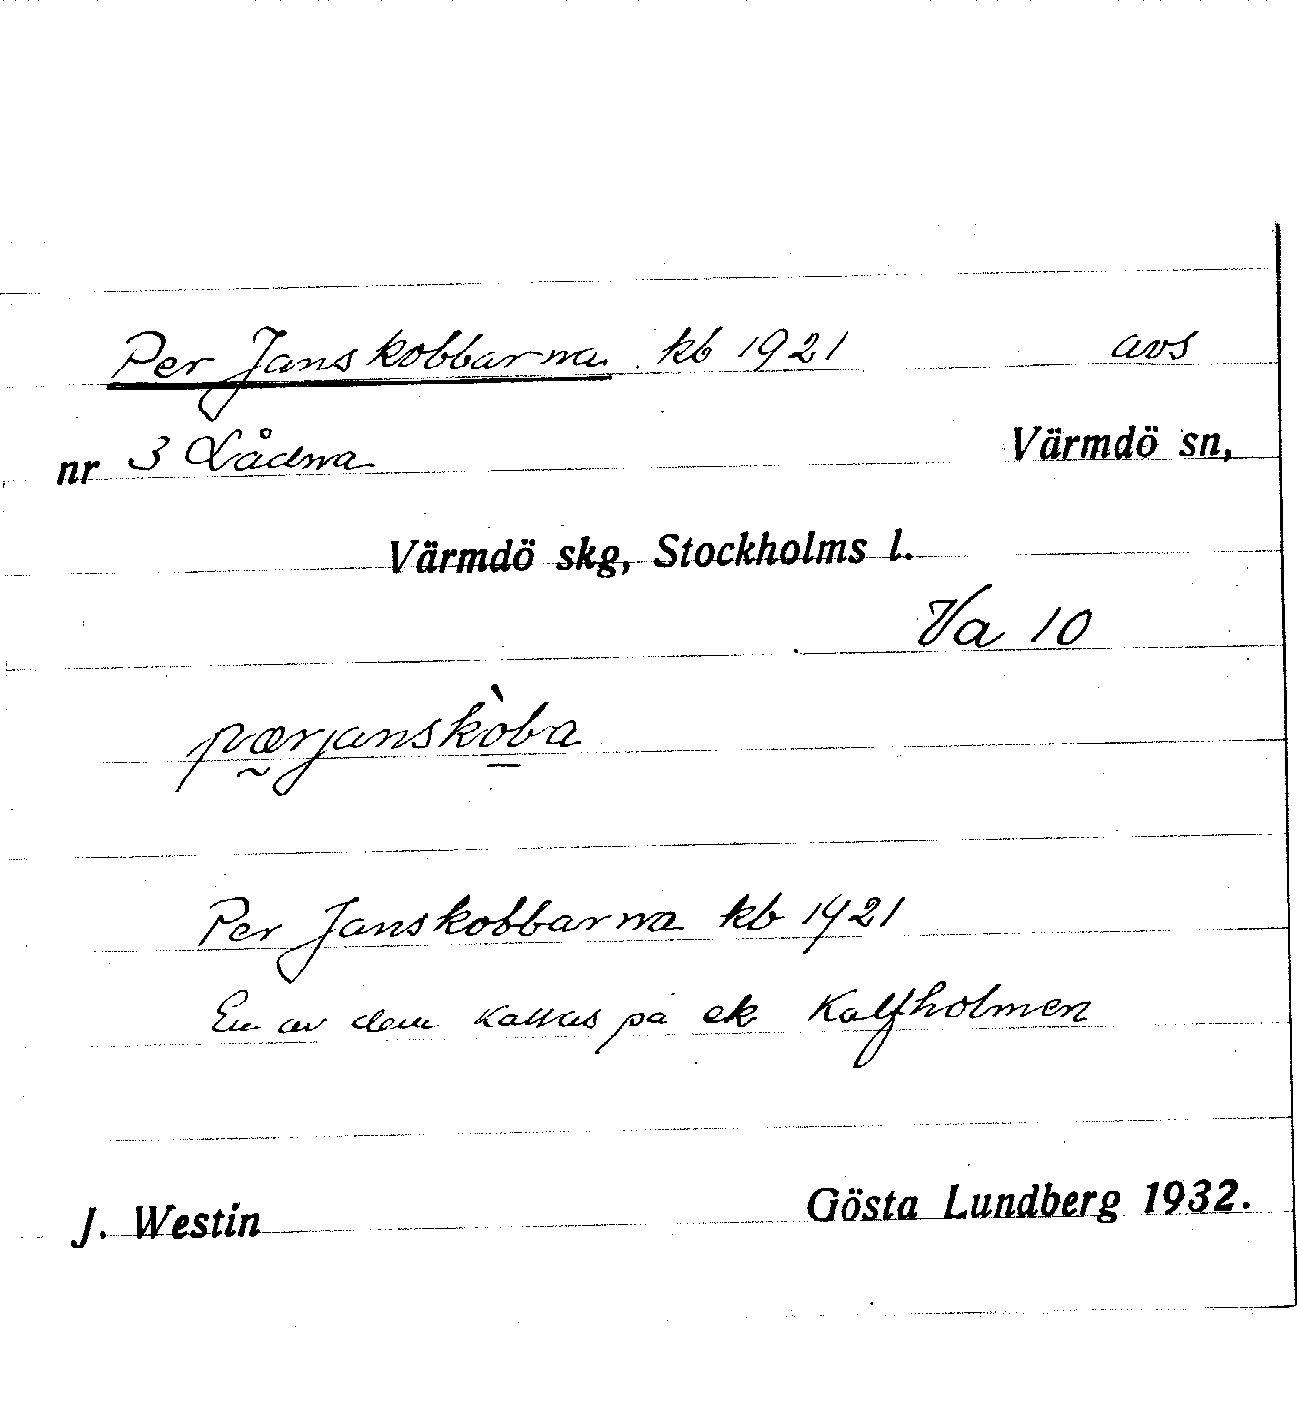 Per Janskobbarna kb 1921 avs
nr 3 Lådna Värmdö sn,
Värmdö skg, Stockholms l.
Va 10
pærjanskòba
Per Janskobbarna kb 1921
En av dem kallas på ek Kalfholmen
J. Westin Gösta Lundberg 1932.